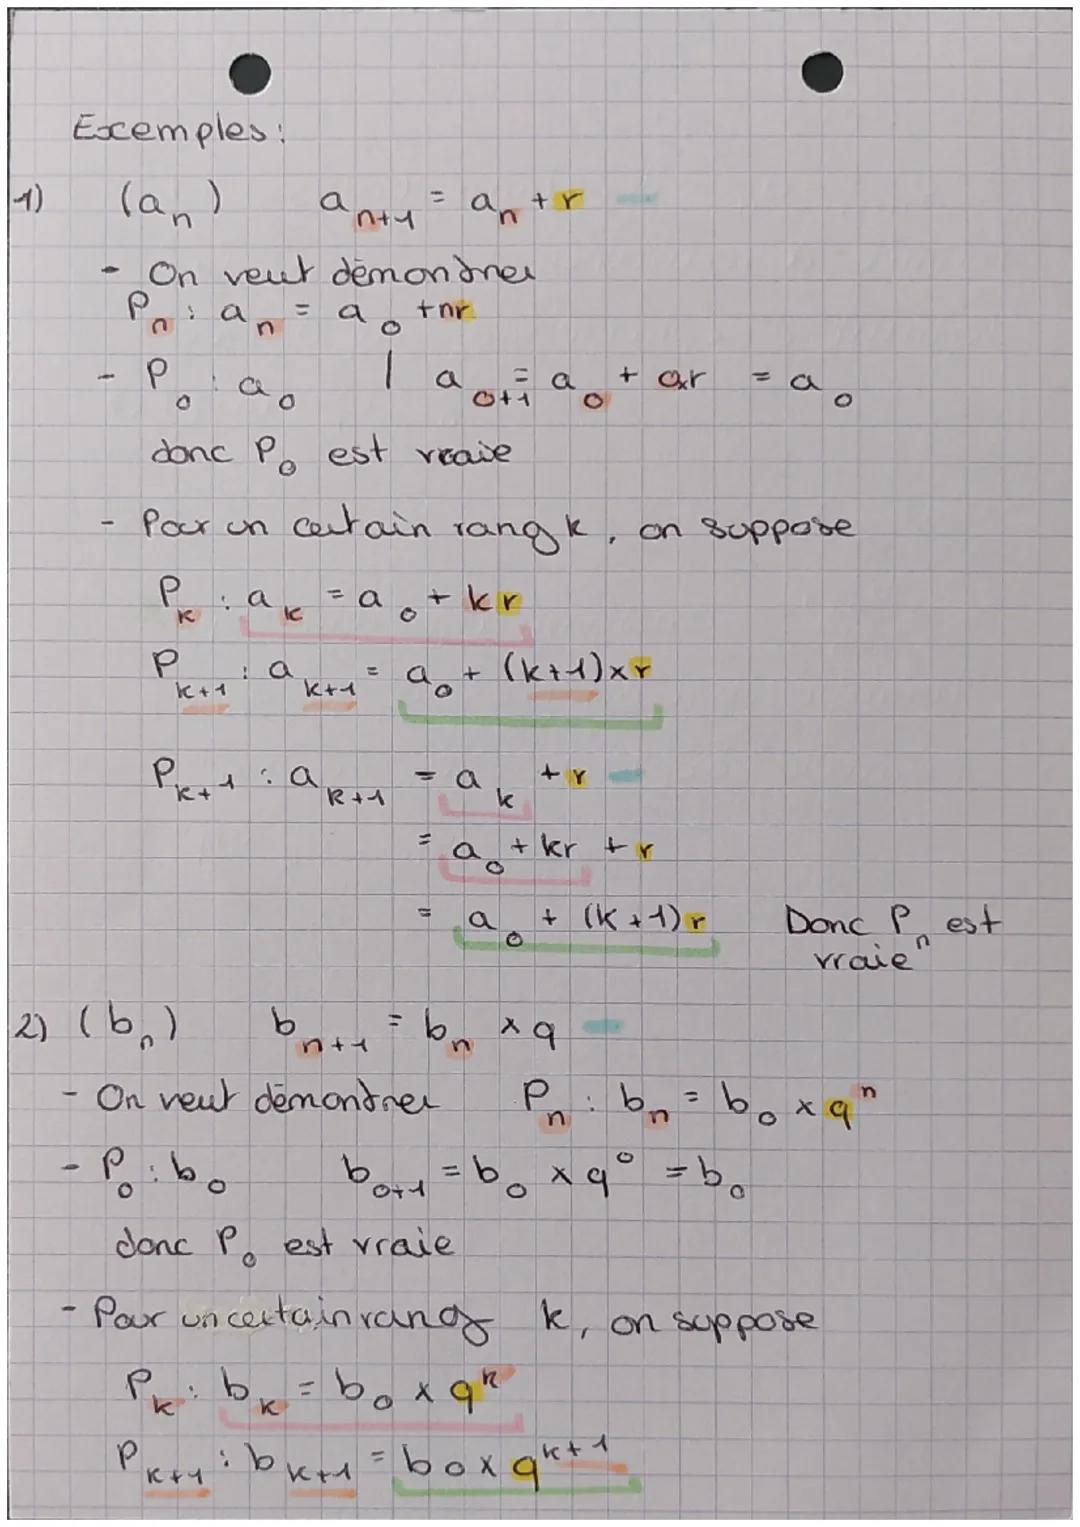 Exemples :
1) (aₙ) aₙ₊₁ = aₙ + r
- On veut démontrer
Pₙ : aₙ = a₀ + nr
- P₀ : a₀ | a₀₊₁ = a₀ + 0xr = a₀
donc P₀ est vraie
- Pour un certain rang k, on suppose
Pₖ : aₖ = a₀ + kr
Pₖ₊₁ : aₖ₊₁ = a₀ + (k+1)×r
Pₖ₊₁ : aₖ₊₁ = aₖ + r
= a₀ + kr + r
= a₀ + (k+1)r Donc Pₙ est
vraie
2) (bₙ) bₙ₊₁ = bₙ × q
- On veut démontrer Pₙ : bₙ = b₀ × qⁿ
- P₀ : b₀ b₀₊₁ = b₀ × q⁰ = b₀
donc P₀ est vraie
- Pour un certain rang k, on suppose
Pₖ : bₖ = b₀ × qᵏ
Pₖ₊₁ : bₖ₊₁ = b₀ × qᵏ⁺¹